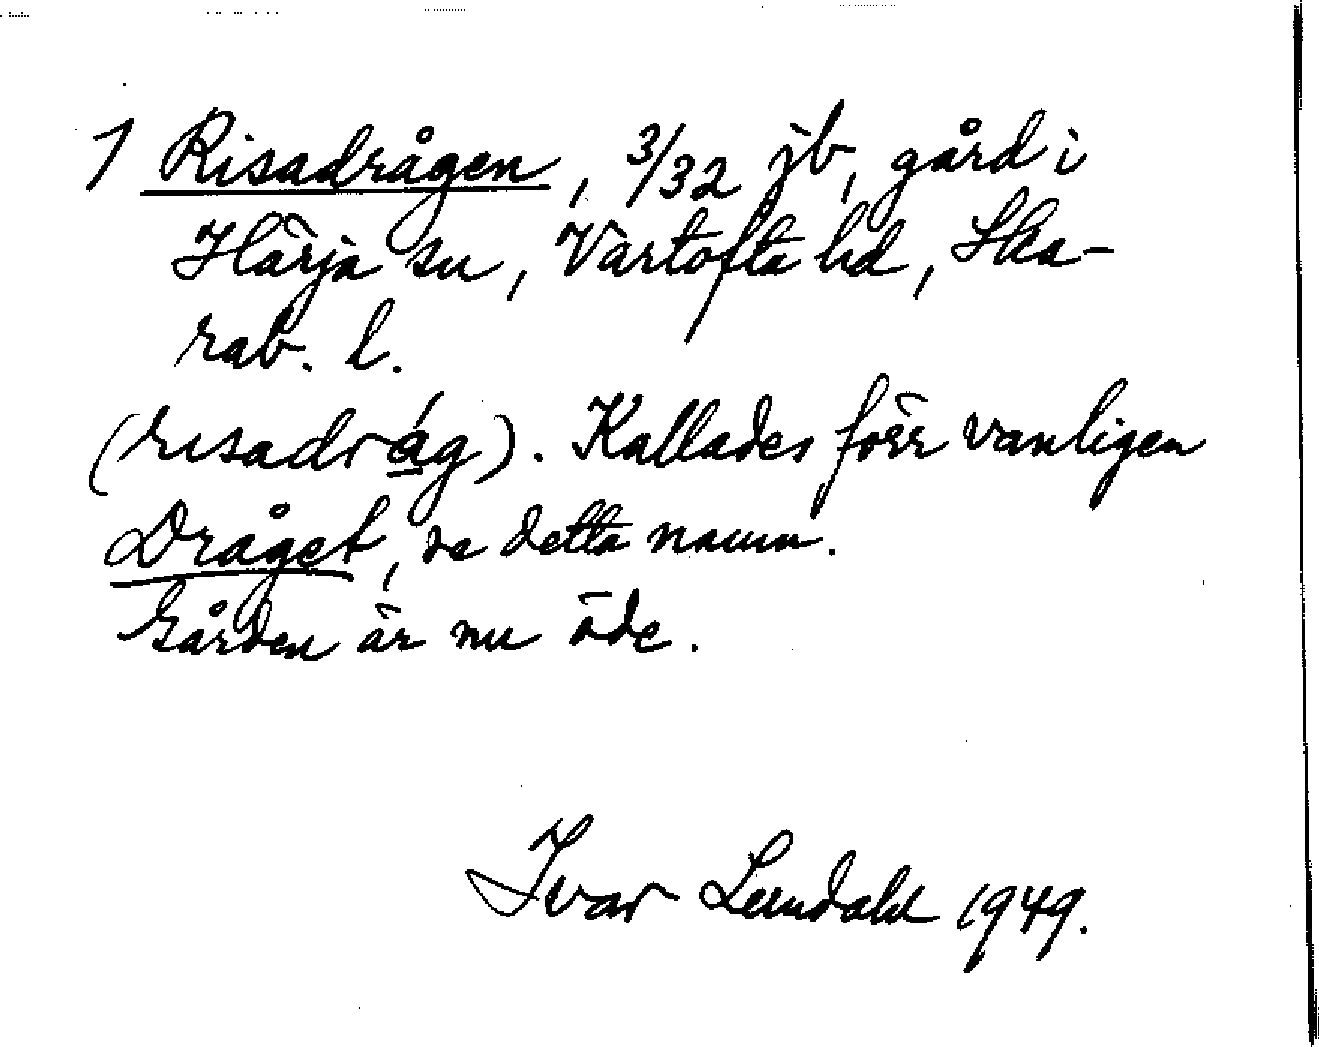 1 Risadrågen, 3/32 jb, gård i
Härja sn, Vartofta hd, Ska-
rab. l.
(risadrág). Kallades förr vanligen
Dråget, se detta namn.
Gården är nu öde.
Ivar Lundahl 1949.